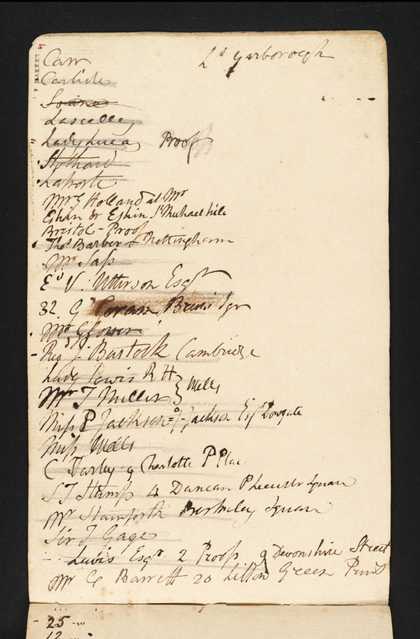 Carr Ld Yarborough
Carlisle
Soane
Lascelles
Lady Lucas Proofs
Stothard
Laporte
Mrs Holland at Mr
Eshan or Eshin St Michael hill
Bristol - Proof
Thos Barber Nottingham
Mr Sass
Ed V. Utterson Esqr
32. Gt Coram Bruns Sqr
Mr Glover
Revd J. Bostock Cambridge
Lady Lewis R H
Mr J Miller } Wells
Miss P Jackson J. Jackson Esqr Dowgate
Miss Wells
C Turley 9 Charlotte P Place
S T Stamp 4 Duncan P Leicester Square
Mr Stainforth Berkeley Square
Sir T Gage
Lewis Esqr 2 Proofs 9 Devonshire Street
Mr G Barrett 20 Lisson Green Print
25
12